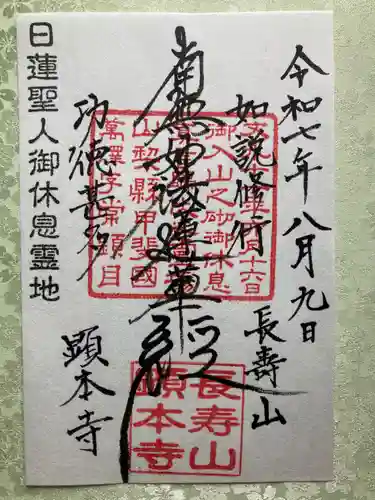 令和七年八月九日
長壽山
如說修行
南無妙法蓮華経
功德甚多
顯本寺
日蓮聖人御休息霊地
御入山之砌御休息
山梨縣甲斐國
萬澤字西顕目
長寿山
顕本寺